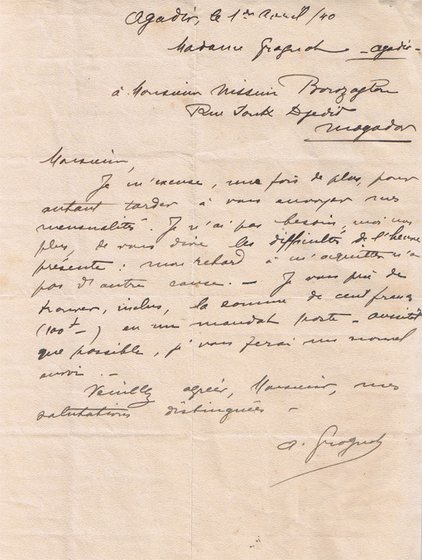 Agadir, le 1er avril /40
Madame Grognot - Agadir -
à Monsieur Nissim
Rue Souk Djedid
Mogador
Monsieur,
Je m'excuse, une fois de plus, pour
autant tarder à vous envoyer mes
mensualités. Je n'ai pas besoin, moi non
plus, de vous dire les difficultés de l'heure
présente : mon retard à m'acquitter n'a
pas d'autre cause. - Je vous prie de
trouver, inclus, la somme de cent francs
(100f -) en un mandat poste - aussitôt
que possible, je vous ferai un nouvel
envoi. -
Veuillez agréer, Monsieur, mes
salutations distinguées -
A. Grognot